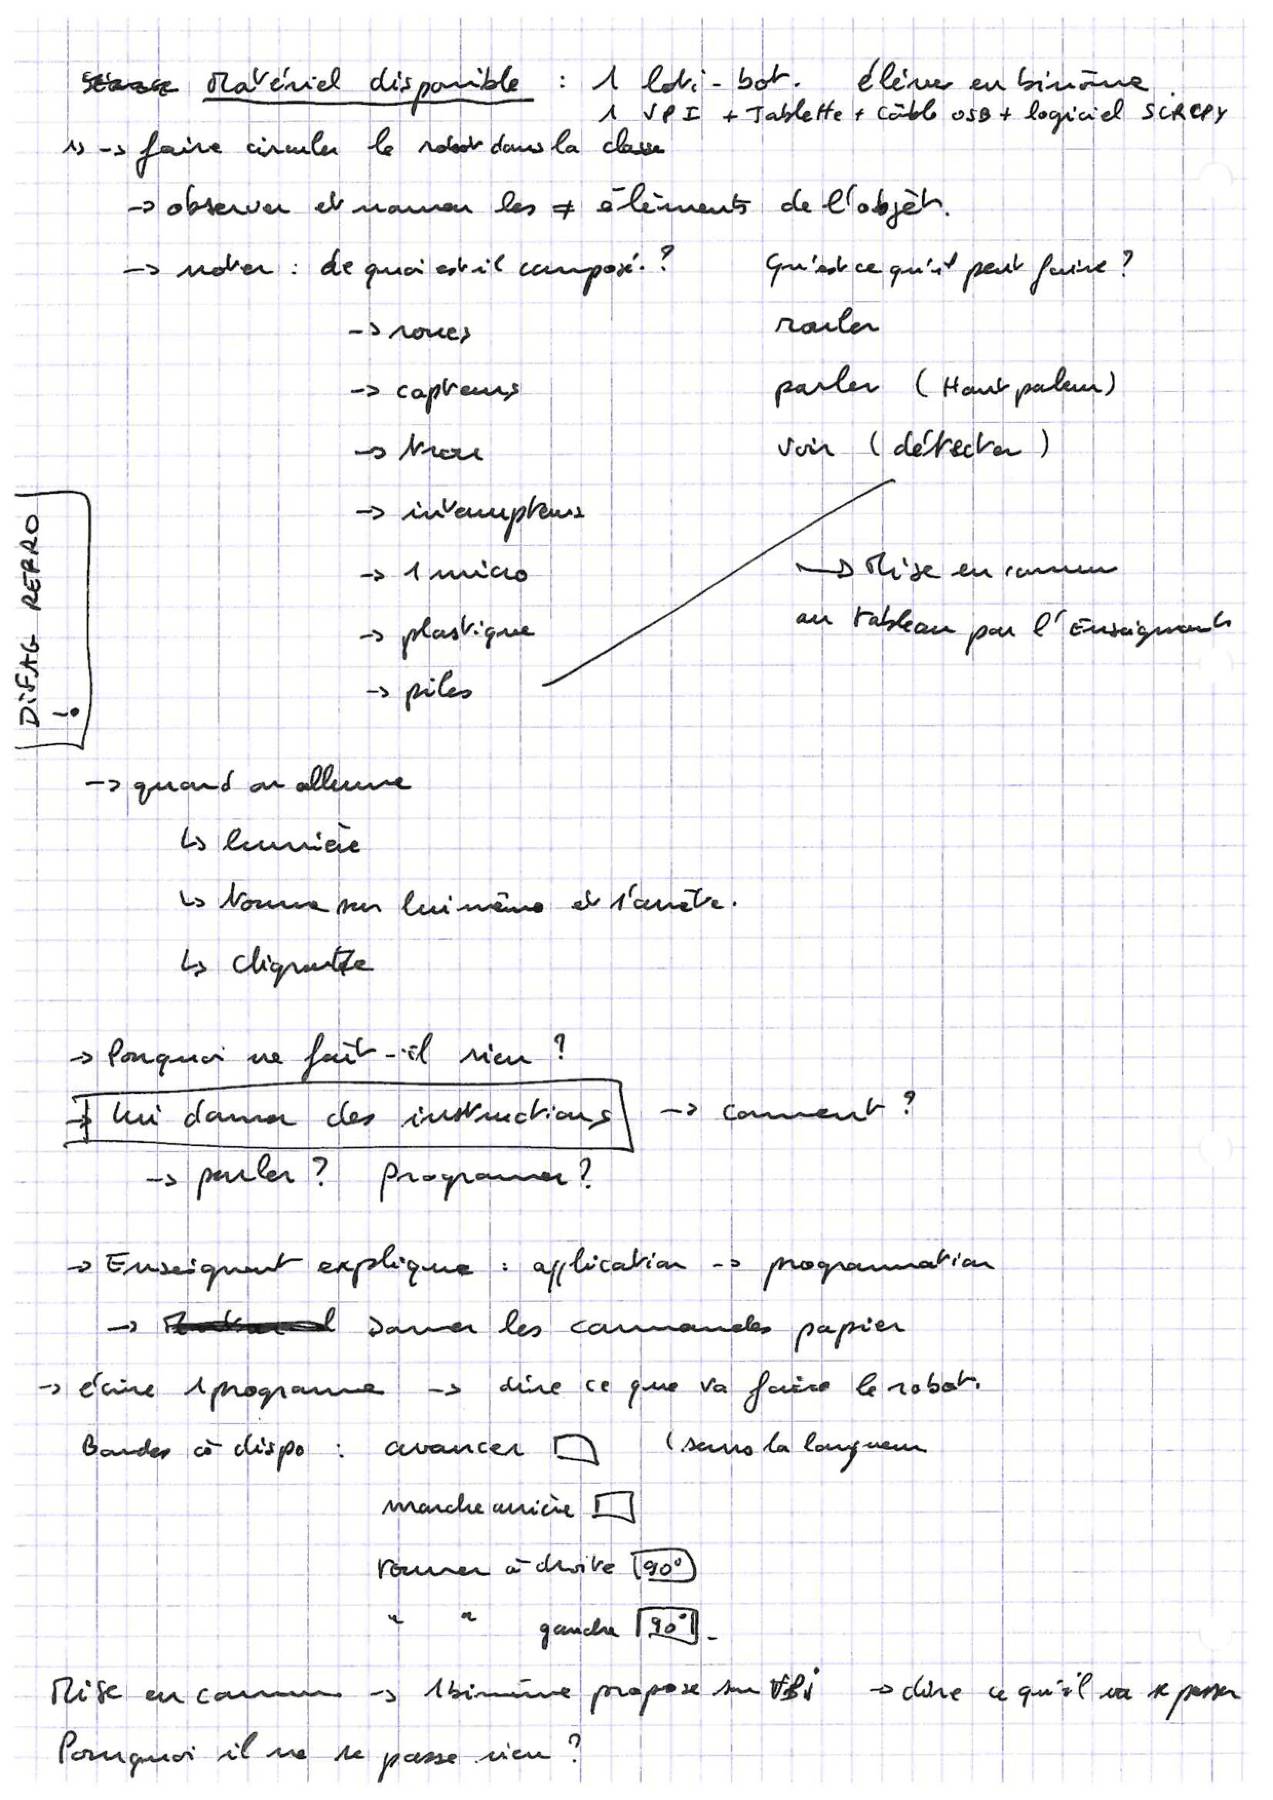 Matériel disponible : 1 loti-bot. élèves en binôme
1 VPI + Tablette + Câble USB + logiciel SCRCPY
1) -> faire circuler le robot dans la classe
-> observer et nommer les ≠ élèments de l'objèt.
-> noter : de quoi est il composé ? Qu'est ce qu'il peut faire ?
-> roues rouler
-> capteurs parler (Haut parleur)
-> trou voir (détecter)
-> interrupteurs
-> 1 micro -> Mise en commun
-> plastique au tableau par l'Enseignant
-> piles
DiFAG REPRO
-> quand on allume
↳ lumière
↳ tourne sur lui même et s'arrête.
↳ clignote
-> Pourquoi ne fait-il rien ?
-> lui donner des instructions -> comment ?
-> parler ? Programmer ?
-> Enseignant explique : application -> programmation
-> Donner les commandes papier
-> écrire 1 programme -> dire ce que va faire le robot.
Bandes à dispo : avancer (sans la longueur
marche arrière
tourner à droite 90°
" " gauche 90°.
Mise en commun -> 1 binôme propose sur VPi -> dire ce qu'il va se passer
Pourquoi il ne se passe rien ?